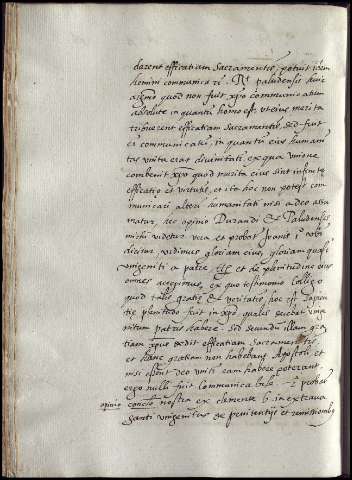 darent efficatiam Sacramentis, potuit idem
homini communicari. Rx paludensis huic
argumento quod non fuit xpo communicatum
absolute in quantum homo est ut eius merita
tribuerent efficatiam Sacramentis, sed fuit
ei communicatum, in quantum eius humani
tas unita erat divinitati ex qua unione
convenit xpo quod merita eius sint infinite
efficatie et virtutis, et ita hoc non potest com
municari alteri humanitati nisi a deo assu
matur, hec opinio Durandi & Paludensis
michi videtur vera et probat Joanis 1º ubi
dicitur, vidimus gloriam eius, gloriam quasi
unigeniti a patre et de plenitudine eius
omnes accepimus, ex quo testimonio Colligo
quod talis gratie & veritatis, hoc est sapien
tie plenitudo fuit in xpo qualis decebat unige
nitum patris habere. Sed secundum illam gra
tiam xpus dedit efficatiam Sacramentis,
et hanc gratiam non habebant Apostoli, et
nisi essent deo uniti eam habere poterant
ergo nulli fuit communicabile. 2º probatur
opinio conclusio nostra ex clemente 6 in extrava
ganti unigenitus de penitentijs et remissionibus